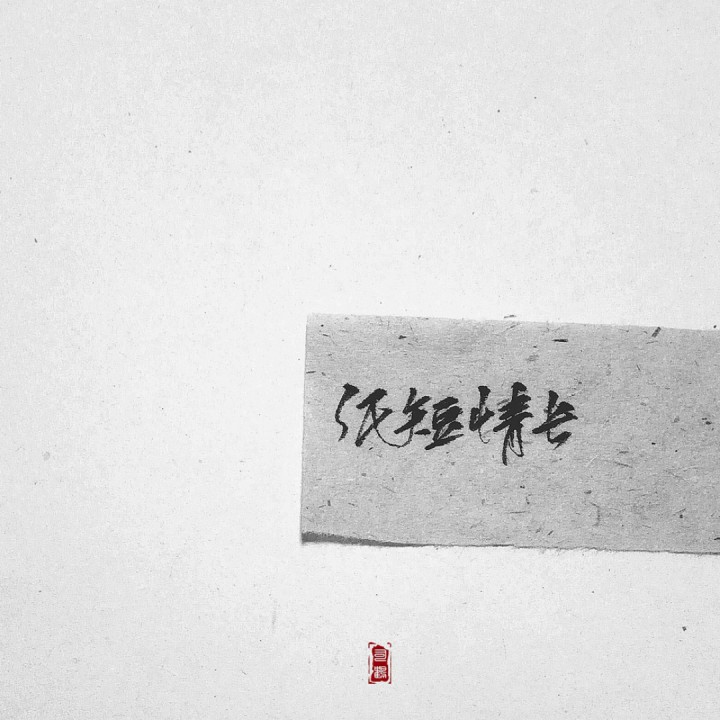 纸短情长